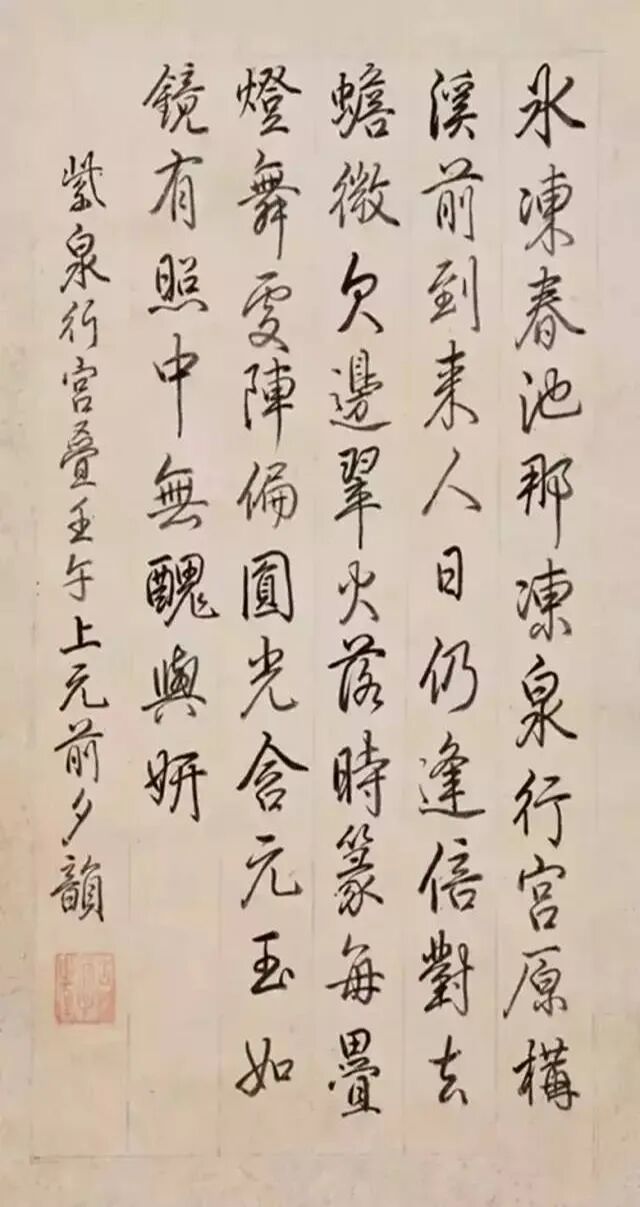 氷凍春池那凍泉行宮原構
溪前到来人日仍逢倍對去
蟾微欠邊翠火落時篆每疊
燈舞處陣偏圓光含元玉如
鏡有照中無醜與妍
紫泉行宫叠壬午上元前夕韻